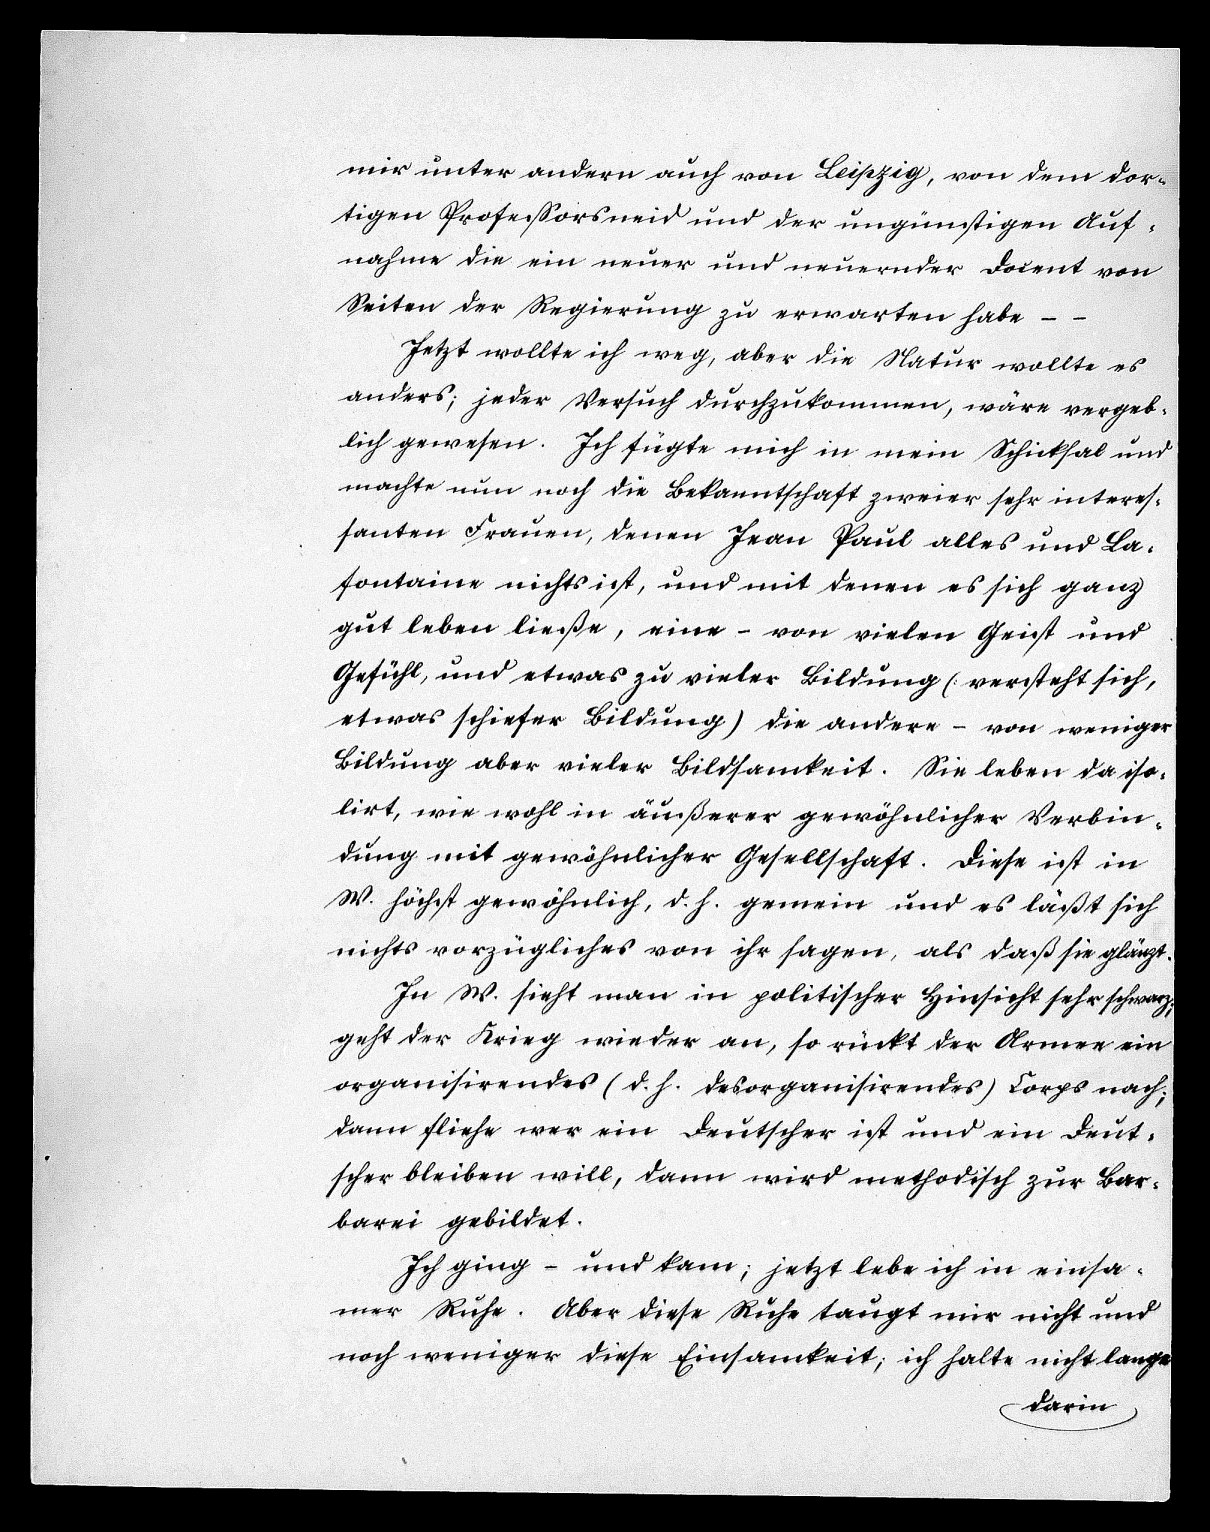 mir unter andern auch von Leipzig, von dem dor-
tigen Professorsneid und der ungünstigen Auf-
nahme die ein neuer und neuernder Docent von
Seiten der Regierung zu erwarten habe – –
Jetzt wollte ich weg, aber die Natur wollte es
anders; jeder Versuch durchzukommen, wäre vergeb-
lich gewesen. Ich fügte mich in mein Schicksal und
machte nun noch die Bekanntschaft zweier sehr interes-
santen Frauen, denen Jean Paul alles und La-
fontaine nichts ist, und mit denen es sich ganz
gut leben ließe, eine – von vielen Geist und
Gefühl, und etwas zu vieler Bildung (: versteht sich,
etwas schiefer Bildung) die andere – von weniger
Bildung aber vieler Bildsamkeit. Sie leben da iso-
lirt, wie wohl in äußerer gewöhnlicher Verbin-
dung mit gewöhnlicher Gesellschaft. Diese ist in
W. höchst gewöhnlich, d. h. gemein und es läßt sich
nichts vorzügliches von ihr sagen, als daß sie glänzt.
In W. sieht man in politischer Hinsicht sehr schwarz;
geht der Krieg wieder an, so rückt der Armee ein
organisirendes (d. h. desorganisirendes) Corps nach;
dann fliehe wer ein Deutscher ist und ein Deut-
scher bleiben will, dann wird methodisch zur Bar-
barei gebildet.
Ich ging – und kam; jetzt lebe ich in einsa-
mer Ruhe. Aber diese Ruhe taugt mir nicht und
noch weniger diese Einsamkeit; ich halte nicht lange
darin